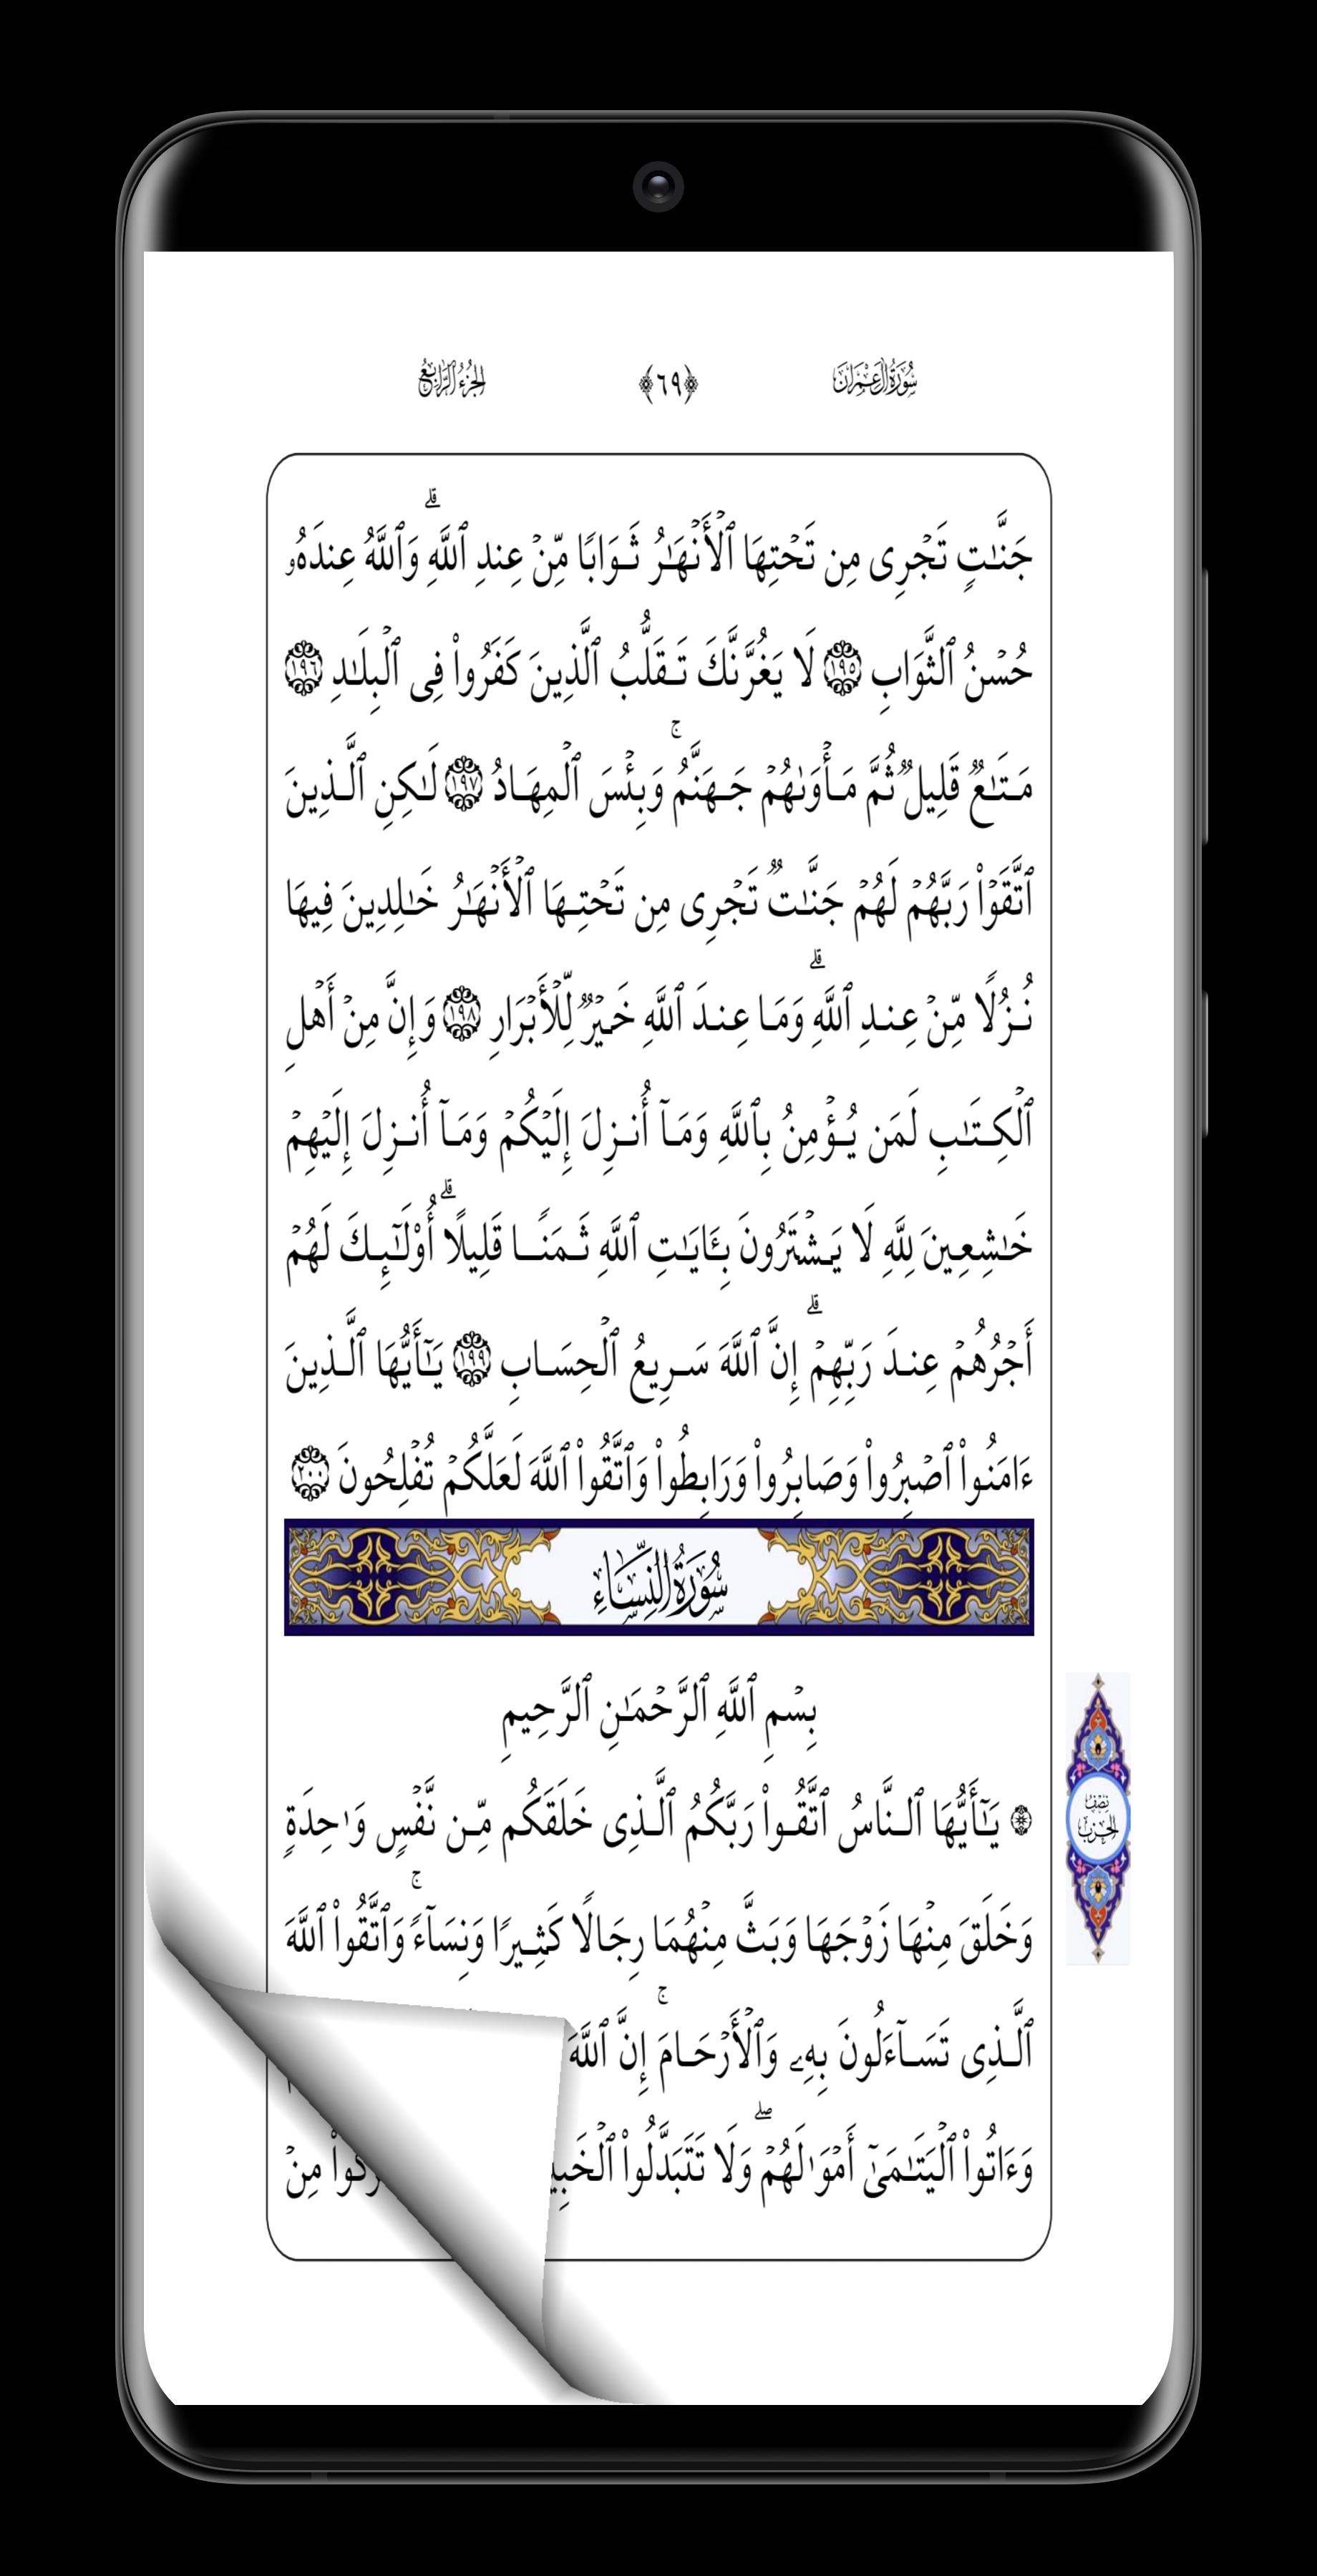 سُورَةُ آلِ عِمْرَانَ
﴿٦٩﴾
الجُزْءُ الرَّابِعُ
جَنَّـٰتٍ تَجۡرِى مِن تَحۡتِهَا ٱلۡأَنۡهَـٰرُ ثَوَابًا مِّنۡ عِندِ ٱللَّهِۗ وَٱللَّهُ عِندَهُۥ
حُسۡنُ ٱلثَّوَابِ ١٩٥ لَا يَغُرَّنَّكَ تَقَلُّبُ ٱلَّذِينَ كَفَرُواْ فِى ٱلۡبِلَـٰدِ ١٩٦
مَتَـٰعٌ قَلِيلٌ ثُمَّ مَأۡوَىٰهُمۡ جَهَنَّمُۚ وَبِئۡسَ ٱلۡمِهَادُ ١٩٧ لَـٰكِنِ ٱلَّذِينَ
ٱتَّقَوۡاْ رَبَّهُمۡ لَهُمۡ جَنَّـٰتٌ تَجۡرِى مِن تَحۡتِهَا ٱلۡأَنۡهَـٰرُ خَـٰلِدِينَ فِيهَا
نُزُلًا مِّنۡ عِندِ ٱللَّهِۗ وَمَا عِندَ ٱللَّهِ خَيۡرٌ لِّلۡأَبۡرَارِ ١٩٨ وَإِنَّ مِنۡ أَهۡلِ
ٱلۡكِتَـٰبِ لَمَن يُؤۡمِنُ بِٱللَّهِ وَمَآ أُنزِلَ إِلَيۡكُمۡ وَمَآ أُنزِلَ إِلَيۡهِمۡ
خَـٰشِعِينَ لِلَّهِ لَا يَشۡتَرُونَ بِـَٔايَـٰتِ ٱللَّهِ ثَمَنًا قَلِيلًاۗ أُوْلَـٰٓئِكَ لَهُمۡ
أَجۡرُهُمۡ عِندَ رَبِّهِمۡۗ إِنَّ ٱللَّهَ سَرِيعُ ٱلۡحِسَابِ ١٩٩ يَـٰٓأَيُّهَا ٱلَّذِينَ
ءَامَنُواْ ٱصۡبِرُواْ وَصَابِرُواْ وَرَابِطُواْ وَٱتَّقُواْ ٱللَّهَ لَعَلَّكُمۡ تُفۡلِحُونَ ٢٠٠
سُورَةُ النِّسَاءِ
بِسۡمِ ٱللَّهِ ٱلرَّحۡمَـٰنِ ٱلرَّحِيمِ
۞ يَـٰٓأَيُّهَا ٱلنَّاسُ ٱتَّقُواْ رَبَّكُمُ ٱلَّذِى خَلَقَكُم مِّن نَّفۡسٍ وَٰحِدَةٍ
نِصْفُ
الحِزْبِ
وَخَلَقَ مِنۡهَا زَوۡجَهَا وَبَثَّ مِنۡهُمَا رِجَالًا كَثِيرًا وَنِسَآءًۚ وَٱتَّقُواْ ٱللَّهَ
ٱلَّذِى تَسَآءَلُونَ بِهِۦ وَٱلۡأَرۡحَامَۚ إِنَّ ٱللَّهَ
وَءَاتُواْ ٱلۡيَتَـٰمَىٰٓ أَمۡوَٰلَهُمۡۖ وَلَا تَتَبَدَّلُواْ مِنۡ